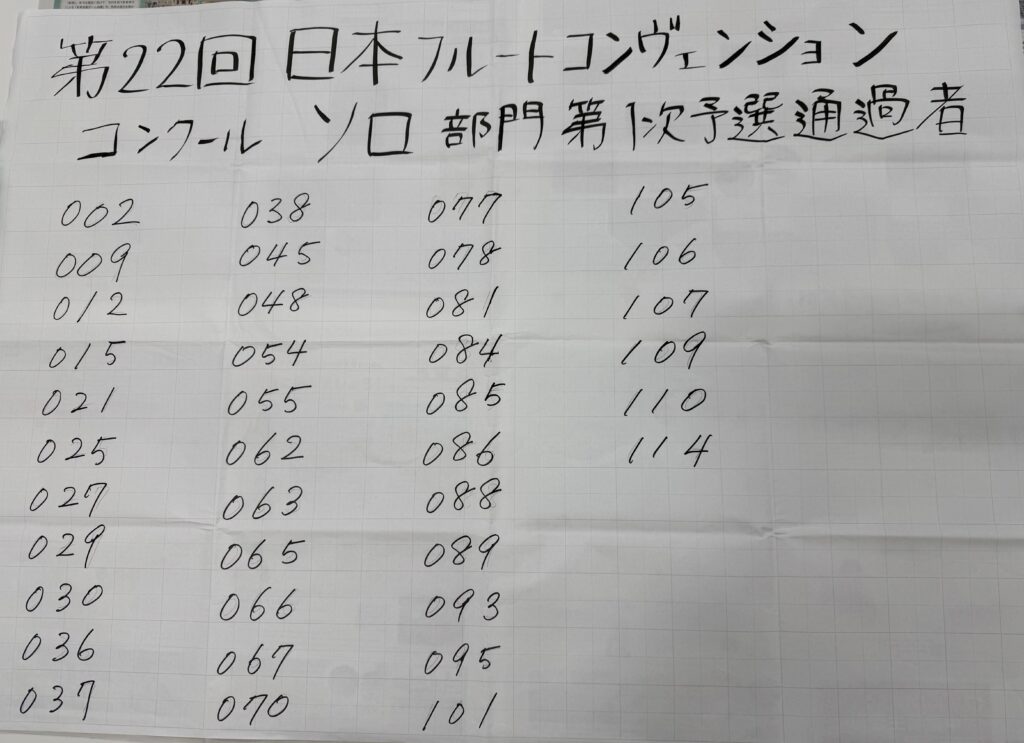 第22回 日本フルートコンヴェンション
コンクール ソロ 部門 第1次予選通過者
002 038 077 105
009 045 078 106
012 048 081 107
015 054 084 109
021 055 085 110
025 062 086 114
027 063 088
029 065 089
030 066 093
036 067 095
037 070 101